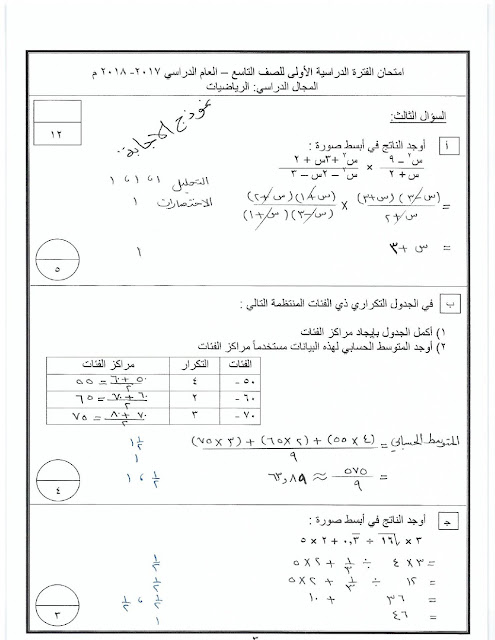 امتحان الفترة الدراسية الأولى للصف التاسع – العام الدراسي ٢٠١٧- ٢٠١٨ م
المجال الدراسي: الرياضيات
نموذج الإجابة
١٢
السؤال الثالث:
أ أوجد الناتج في أبسط صورة :
(س٢ – ٩)/(س + ٢) × (س٢ + ٣س + ٢)/(س٢ – ٢س – ٣)
= (س-٣)(س+٣)/(س+٢) × (س+١)(س+٢)/(س-٣)(س+١)
التحليل ١، ١، ١
الاختصارات ١
= س + ٣
١
٥
ب في الجدول التكراري ذي الفئات المنتظمة التالي :
١) أكمل الجدول بإيجاد مراكز الفئات
٢) أوجد المتوسط الحسابي لهذه البيانات مستخدماً مراكز الفئات
الفئات التكرار مراكز الفئات
٥٠- ٤ (٥٠ + ٦٠)/٢ = ٥٥
٦٠- ٢ (٦٠ + ٧٠)/٢ = ٦٥
٧٠- ٣ (٧٠ + ٨٠)/٢ = ٧٥
المتوسط الحسابي = ((٤ × ٥٥) + (٢ × ٦٥) + (٣ × ٧٥))/٩
١ ١/٢
١
= ٥٧٥/٩ ≈ ٦٣,٨٩
١، ١/٢
٤
ج أوجد الناتج في أبسط صورة :
٣ × √١٦ ÷ ٠,٣ + ٢ × ٥
= ٣ × ٤ ÷ ١/٣ + ٢ × ٥
١/٢
= ١٢ ÷ ١/٣ + ٢ × ٥
١/٢
= ٣٦ + ١٠
١/٢، ١/٢
= ٤٦
١
٣